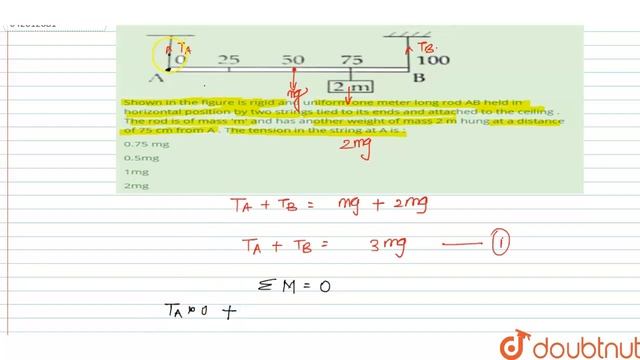 TA TB
0 25 50 75 100
A B
mg 2 m
Shown in the figure is rigid and uniform one meter long rod AB held in
horizontal position by two strings tied to its ends and attached to the ceiling .
The rod is of mass 'm' and has another weight of mass 2 m hung at a distance
of 75 cm from A . The tension in the string at A is :
2mg
0.75 mg
0.5mg
1mg
2mg
TA + TB = mg + 2mg
TA + TB = 3mg — 1
Σ M = 0
TA × 0 +
doubtnut